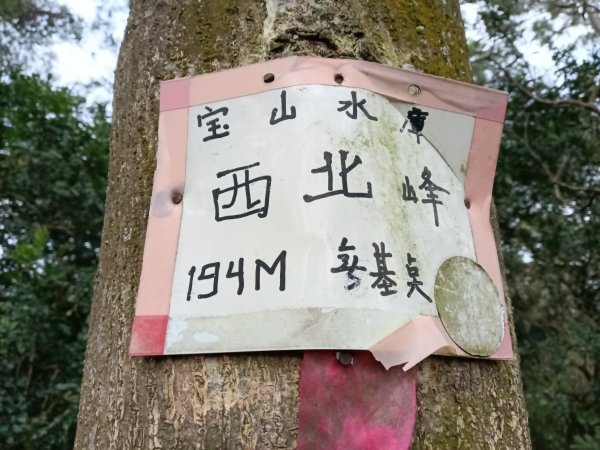 宝山水庫
西北峰
194M 無基点